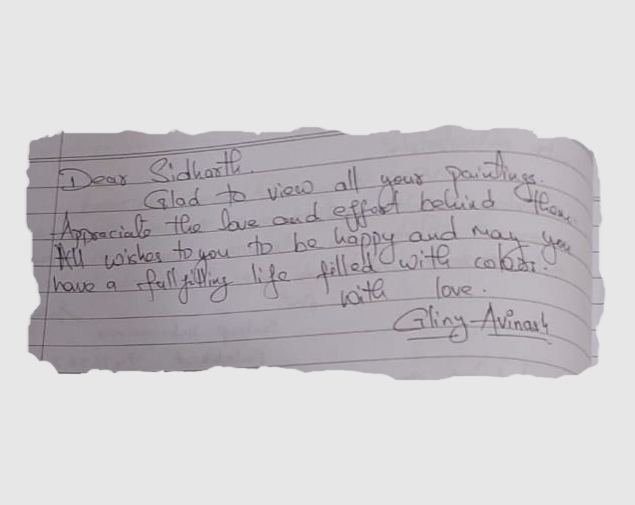 Dear Sidharth.
Glad to view all your paintings.
Appreciate the love and effort behind them.
All wishes to you to be happy and may you
have a fullfilling life filled with colors.
with love.
Gliny Avinash